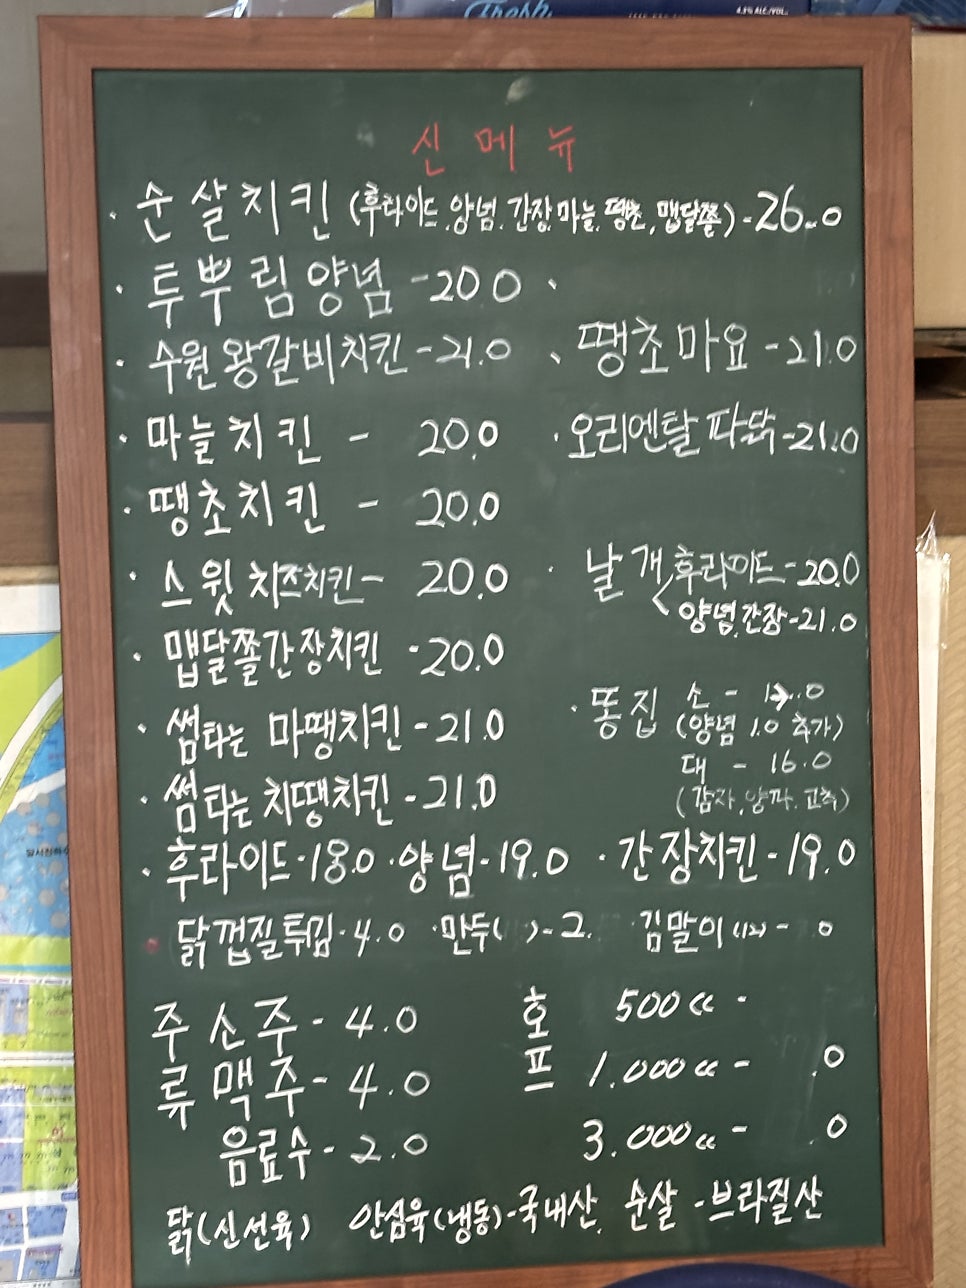 Fresh
신메뉴
· 순살치킨 (후라이드.양념.간장.마늘.땡초,맵달쫄) - 26.0
· 투뿌림양념 - 20.0 ·
· 수원왕갈비치킨 - 21.0 · 땡초마요 - 21.0
· 마늘치킨 - 20.0 · 오리엔탈파닭 - 21.0
· 땡초치킨 - 20.0
· 스윗치즈치킨 - 20.0 · 날개 후라이드 - 20.0
양념,간장 - 21.0
· 맵달쫄간장치킨 - 20.0
· 썸타는 마땡치킨 - 21.0 · 똥집 소 -
(양념 1.0 추가)
대 - 16.0
· 썸타는 치땡치킨 - 21.0 (감자.양파.고추)
· 후라이드 - 18.0 · 양념 - 19.0 · 간장치킨 - 19.0
닭껍질튀김 - 4.0 · 만두( ) - 2. 김말이(12) - 0
주류 소주 - 4.0 호프 500cc -
맥주 - 4.0 1.000cc - .0
음료수 - 2.0 3.000cc - 0
닭(신선육) 안심육(냉동) - 국내산, 순살 - 브라질산